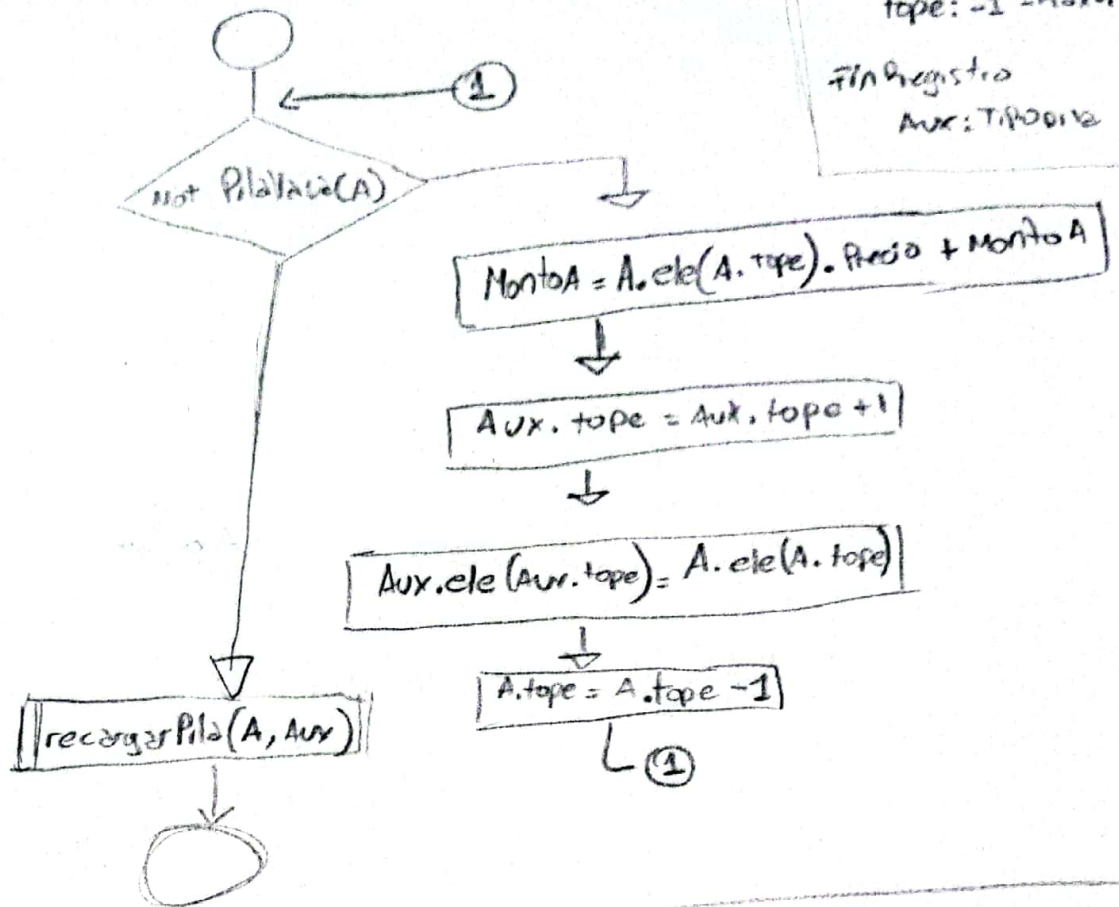 tope: -1
Fin Registro
Aux:
1
Not PilaVacia(A)
MontoA = A.ele(A.tope).Precio + MontoA
Aux.tope = Aux.tope +1
Aux.ele(Aux.tope) = A.ele(A.tope)
A.tope = A.tope -1
1
recargarPila(A, Aux)